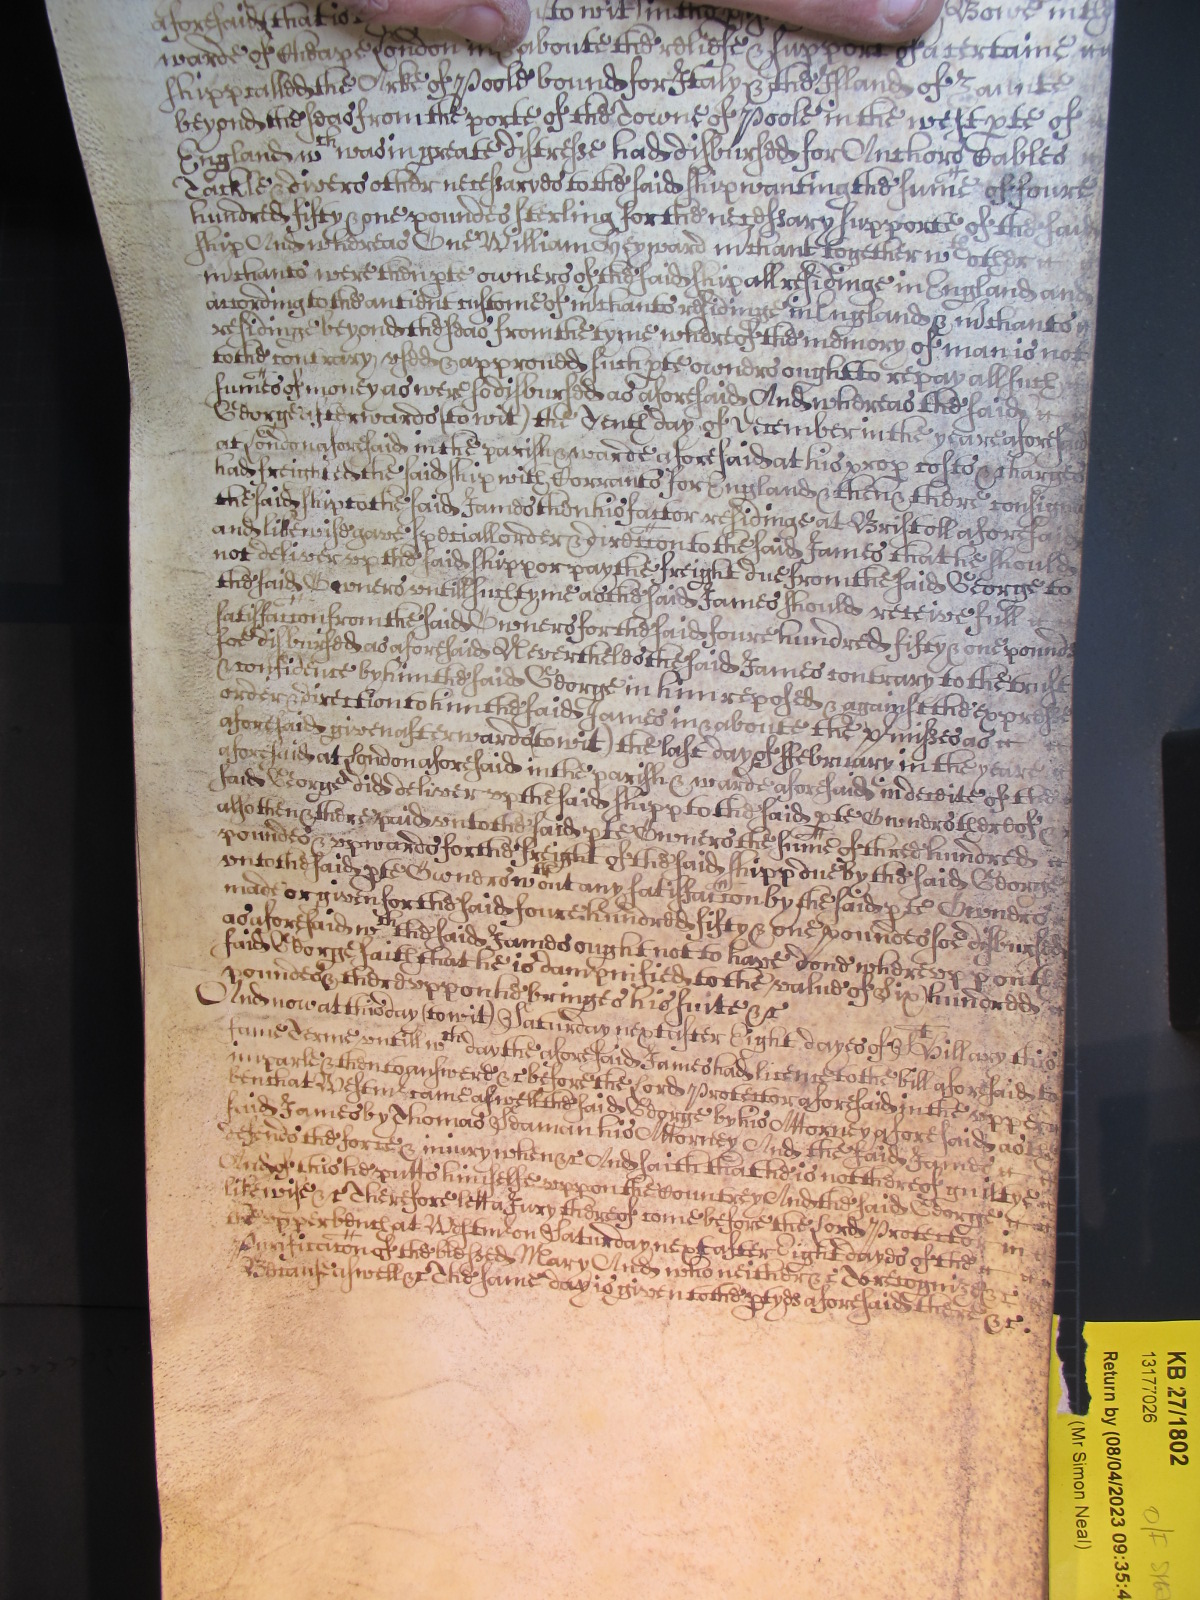 aforesaid that is to wit) in the Bowe in the
warde of Cheape London in & aboute the reliefe & support of a certaine
shipp called the Arke of Poole bound for Italy & the Island of Zante
beyond the seas from the porte of the Towne of Poole in the west pte of
England wch was in greate distresse had disbursed for Anchors Cables
Tackle & divers other necessaryes to the said ship wanting the sume of foure
hundred fifty & one poundes sterling for the necessary supporte of the said
ship And whereas One William Heyward mchant together wth other
mchants were then pte owners of the said ship all residinge in England and
according to the antient custome of mchants residinge in England & mchants
residinge beyond the seas from the tyme whereof the memory of man is not
to the contrary used & approved such pte owners ought to repay all such
sumes of money as were so disbursed as aforesaid And whereas the said
George afterwards (to wit) the Tenth day of December in the yeare aforesaid
at London aforesaid in the parish & warde aforesaid at his prop costs & charges
had freighted the said ship with Corrants for England & then & there consigned
the said ship to the said James then his factor residinge at Bristoll aforesaid
and likewise gave speciall order & direccon to the said James that he should
not deliver up the said shipp or pay the freight due from the said George to
the said Owners untill such tyme as the said James should receive full
satisfaccon from the said Owners for the said foure hundred fifty & one pounds
soe disbursed as aforesaid Neverthelesse the said James contrary to the trust
& confidence by him the said George in him reposed & against the expresse
order & direction to him the said James in & aboute the pmisses as
aforesaid given afterwards (to wit) the last day of ffebruary in the yeare
aforesaid at London aforesaid in the parish & warde aforesaid in deceite of the
said George did deliver up the said shipp to the said pte Owners thereof &
also then & there paid unto the said pte Owners the sume of three hundred
poundes & upwards for the freight of the said shipp due by the said George
unto the said pte Owners wthout any satisfaccon by the said pte Owners
made or given for the said foure hundred fifty & one poundes soe disbursed
as aforesaid wch the said James ought not to have done whereuppon the
said George saith that he is dampnified to the value of Six hundred
poundes & thereuppon he bringes his suite &c
And now at this day (to wit) Saturday next after Eight dayes of St Hillary this
same Terme untill wch day the aforesaid James had licence to the bill aforesaid to
imparle & then to answere &c before the Lord Protector aforesaid in the upper
bench at Westmr came aswell the said George by his Attorney aforesaid as the
said James by Thomas Seaman his Attorney And the said James
defends the force & injury when &c And saith that he is not thereof guiltye
And of this he putts himselfe uppon the Countrey And the said George
likewise &c Therefore lett a Jury thereof come before the Lord Protector in
the upper bench at Westmr on Saturday next after Eight dayes of the
Purificaton of the blessed Mary And who neither &c To recognize &c
Because aswell &c The same day is given to the ptyes aforesaid there &c.
KB 27/1802
13177026
Return by (08/04/2023 09:35:4
(Mr Simon Neal)